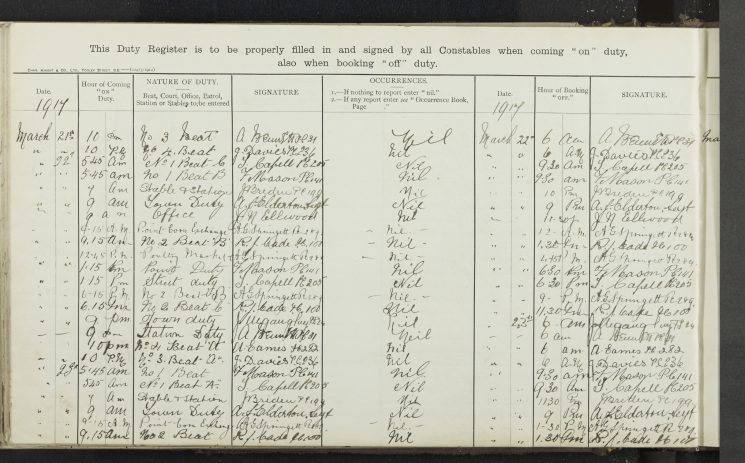 This Duty Register is to be properly filled in and signed by all Constables when coming "on" duty,
also when booking "off" duty.
Date. Hour of Coming "ON" Duty. NATURE OF DUTY. Beat, Court, Office, Patrol, Station or Stables to be entered SIGNATURE OCCURRENCES. 1.—If nothing to report enter "nil." 2.—If any report enter see "Occurrence Book, Page ." Date. Hour of Booking "OFF." SIGNATURE.
1917 1917
March 21st 10 pm No 3 Beat Nil March 22nd 6 am
" " 10 P.M. No 4 Beat J Davies PC 236 Nil " " 6 A.M. J Davies PC 236
" 22 5.45 am No 1 Beat C J. Capell PC 205 Nil " " 9.30 am J. Capell PC 205
" " 5.45 am No 1 Beat B T Mason PC 141 Nil " " 9.30 am T Mason PC 141
" " 7 am Stable & Station J Briden PC 199 Nil " " 10 Pm J Briden PC 199
" " 9 am Town Duty A J Elderton Sergt Nil " " 9 Pm A J Elderton Sergt
" " 9 am Office J N Ellwood Nil " " J N Ellwood
" " 9-15 A.M. Point Corn Exchange A E Springett Pc 289 - Nil - " " 12- A.M. A E Springett Pc 289
" " 9.15 am No 2 Beat B R. J. Cade Pc 100 - Nil - " " 1.30 Pm R. J. Cade Pc 100
" " 12-45 P.M. Poultry Market A E Springett Pc 289 - Nil - " " A E Springett Pc 289
" " 1.15 Pm Point Duty T Mason PC 141 Nil " " 6.30 Pm T Mason PC 141
" " 1.15 Pm Street duty J. Capell PC 205 Nil " " 6.30 Pm J. Capell PC 205
" " 6-15 P.M. No 2 Beat B A E Springett Pc 289 - Nil - " " 9- P.M. A E Springett Pc 289
" " 6.15 Pm No 2 Beat C R. J. Cade Pc 100 Nil " " 11.30 Pm R. J. Cade Pc 100
" " 9 pm Town duty Nil " 23rd 6 am
" " 9 pm Station Duty Nil " " 6 am
" " 10 pm No 4 Beat A A Eames PC 282 Nil " " 6 am A Eames PC 282
" " 10 P.M. No 3. Beat A J Davies PC 236 Nil " " 6 A.M. J Davies PC 236
" 23rd 5.45 am No 1 Beat T Mason PC 141 Nil " " 9.30 am T Mason PC 141
" " 5.45 am No 1 Beat A J. Capell PC 205 Nil " " 9.30 am J. Capell PC 205
" " 7 am Stable & Station J Briden PC 199 Nil " " J Briden PC 199
" " 9 am Town Duty A J Elderton Sergt Nil " " 9 Pm A J Elderton Sergt
" " 9.15 A.M. Point Corn Exchange A E Springett Pc 289 - Nil - " " 1-30 P.M. A E Springett Pc 289
" " 9.15 am No 2 Beat R. J. Cade Pc 100 Nil " " 1.30 Pm R. J. Cade Pc 100